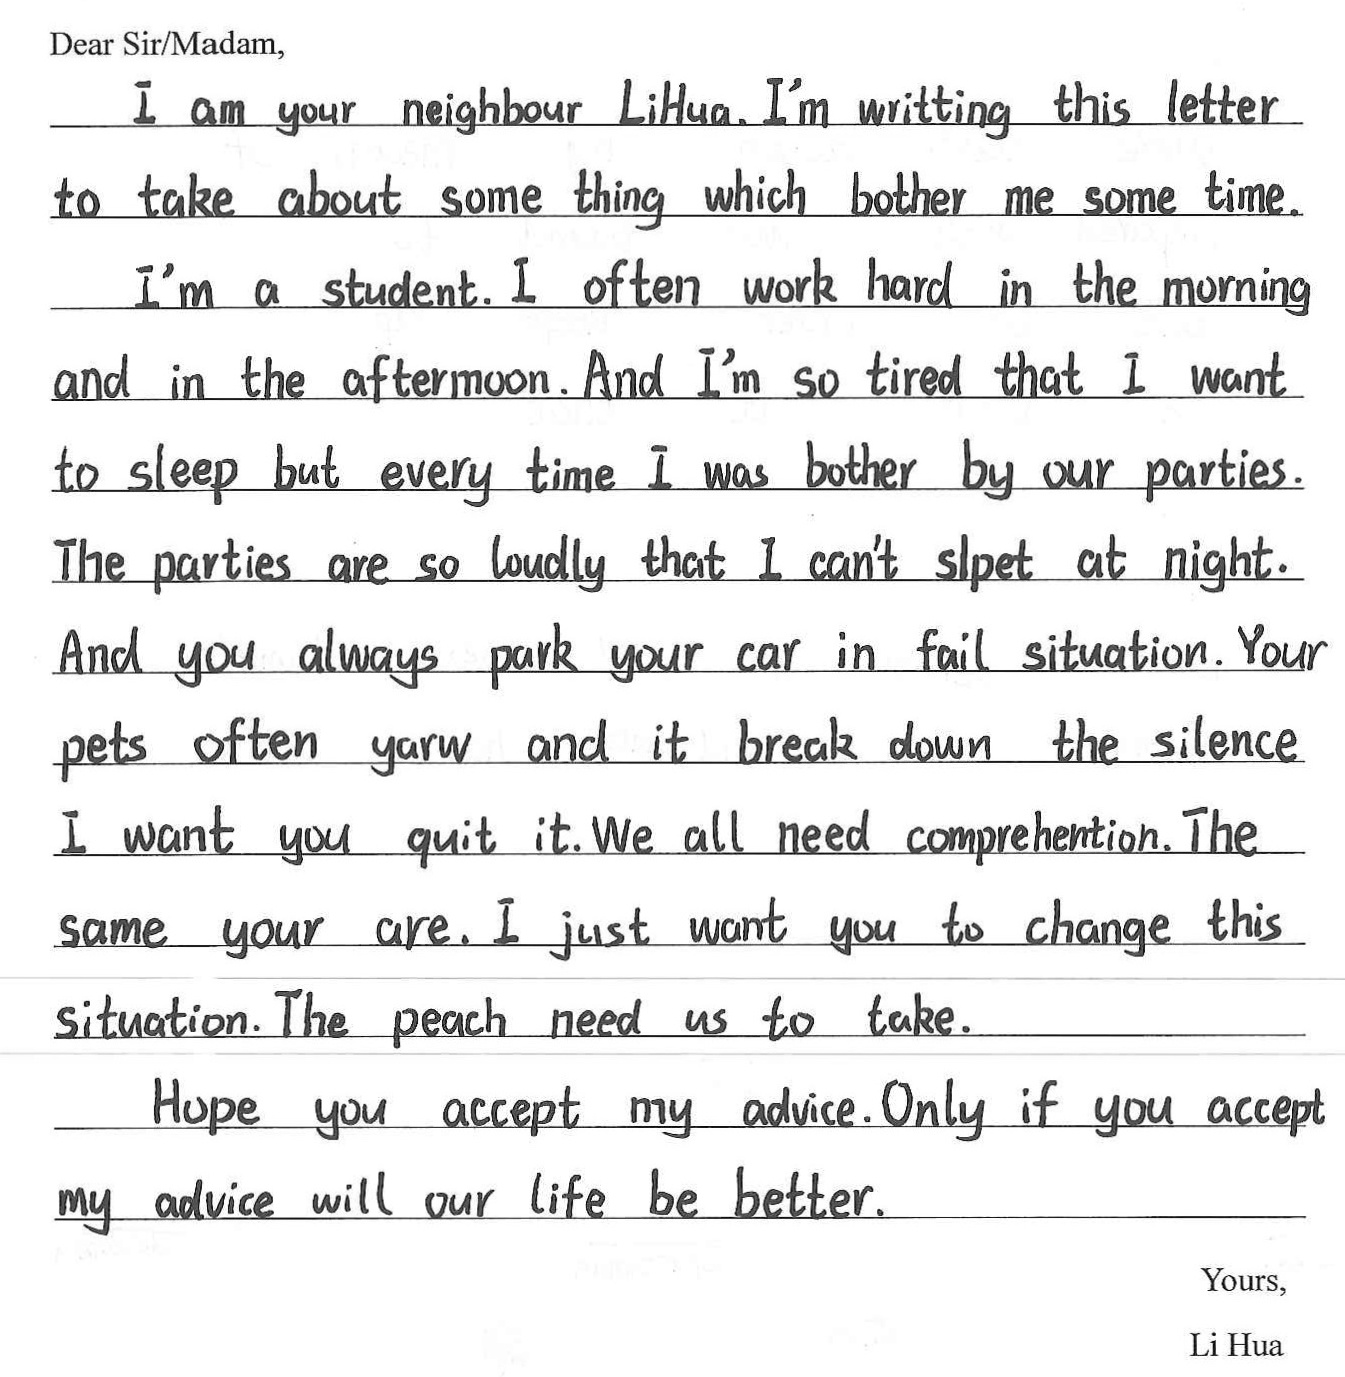 Dear Sir/Madam,
I am your neighbour LiHua. I'm writting this letter
to take about some thing which bother me some time.
I'm a student. I often work hard in the morning
and in the aftermoon. And I'm so tired that I want
to sleep but every time I was bother by our parties.
The parties are so loudly that I can't slpet at night.
And you always park your car in fail situation. Your
pets often yarw and it break down the silence
I want you quit it. We all need comprehention. The
same your are. I just want you to change this
situation. The peach need us to take.
Hope you accept my advice. Only if you accept
my advice will our life be better.
Yours,
Li Hua